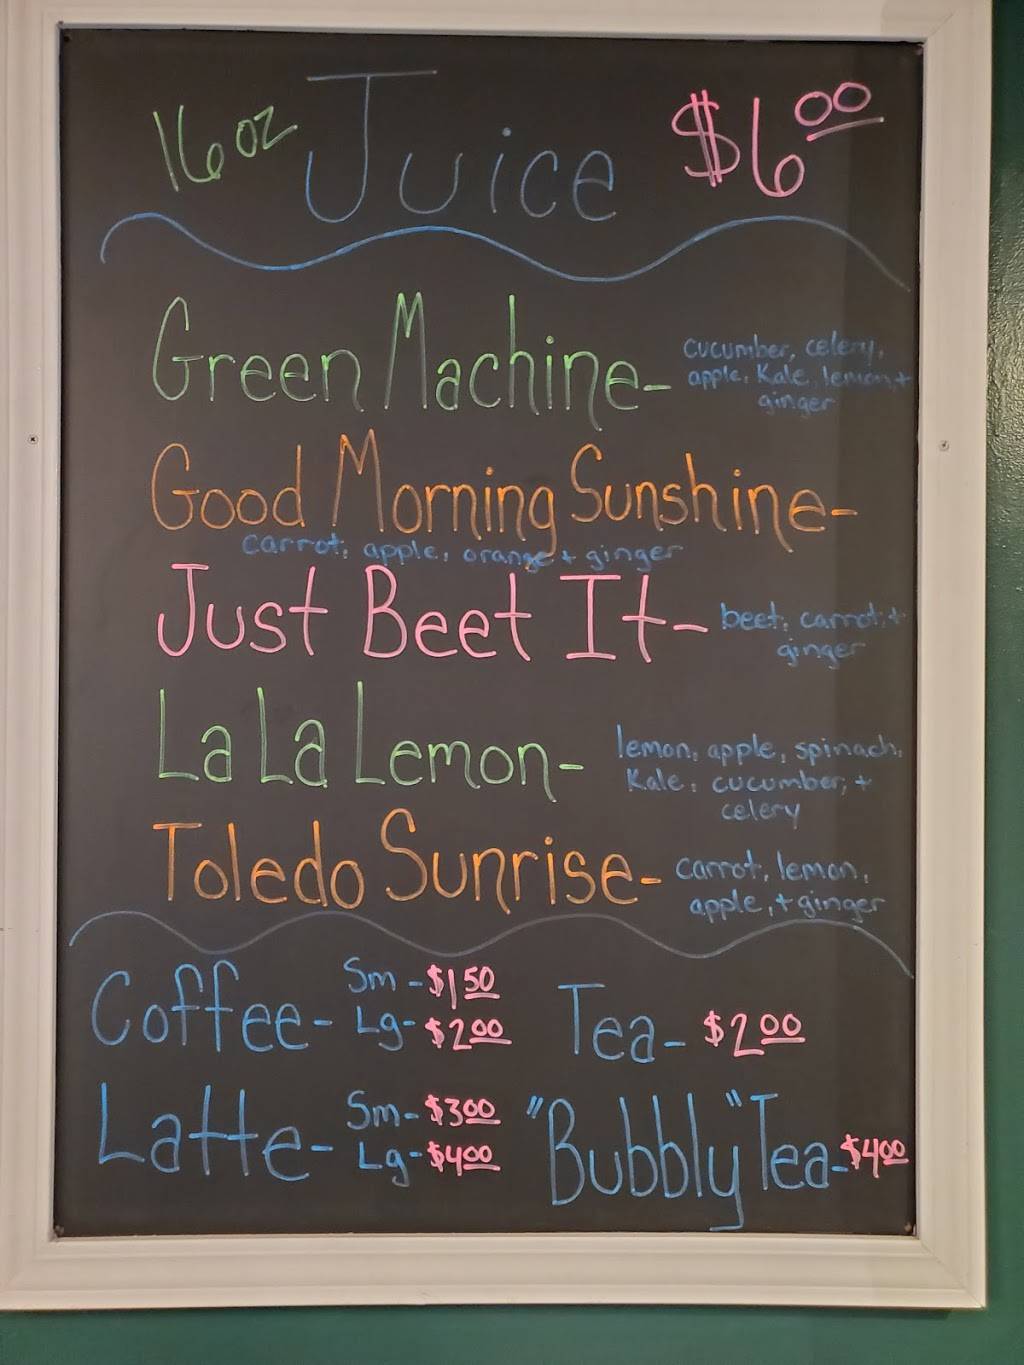 16 oz Juice $6.00
Green Machine- cucumber, celery,
apple, Kale, lemon, +
ginger
Good Morning Sunshine-
carrot, apple, orange + ginger
Just Beet It- beet, carrot, +
ginger
La La Lemon- lemon, apple, spinach,
Kale, cucumber, +
celery
Toledo Sunrise- carrot, lemon,
apple, + ginger
Coffee- Sm - $1.50
Lg- $2.00
Tea- $2.00
Latte- Sm- $3.00
Lg- $4.00
"Bubbly" Tea- $4.00